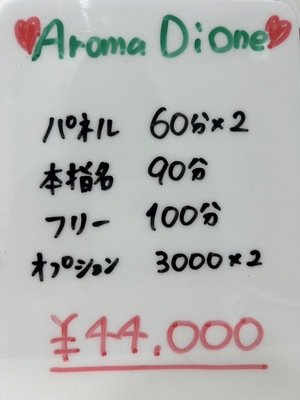 Aroma Dione
パネル 60分×2
本指名 90分
フリー 100分
オプション 3000×2
¥44,000